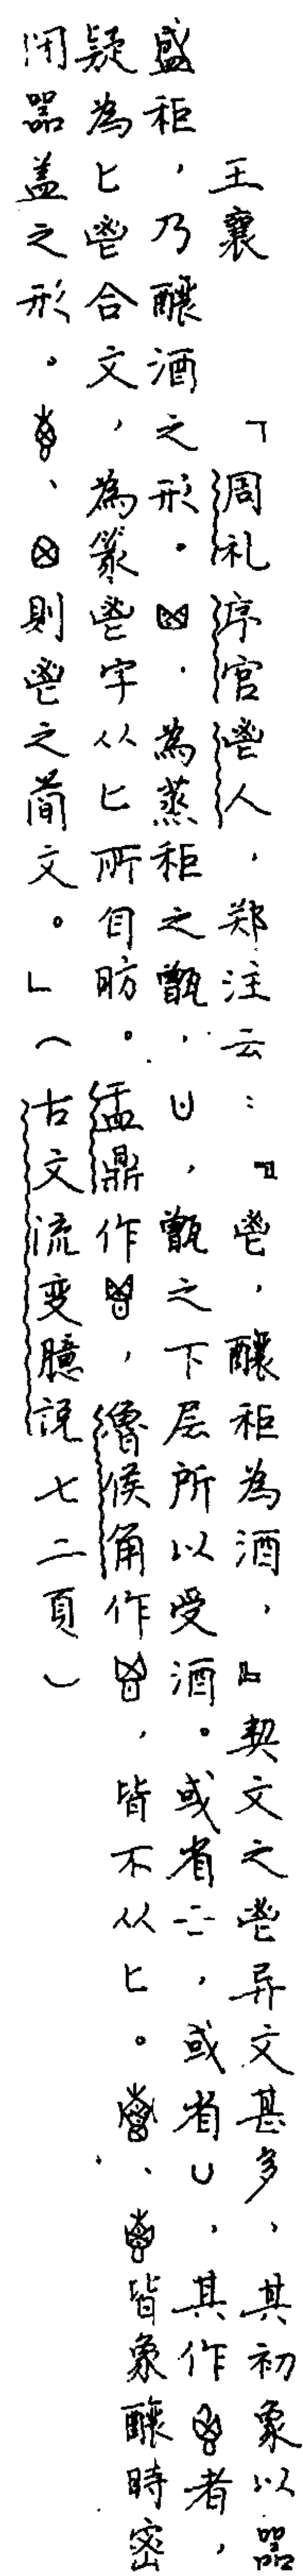 王襄　「周礼序官鬯人，郑注云：『鬯，釀秬為酒，』契文之鬯异文甚多，其初象以器
盛秬，乃釀酒之形。，為蒸秬之甑，凵，甑之下层所以受酒。或省，或省凵，其作者，
疑為匕鬯合文，為篆鬯字从匕所自昉。盂鼎作，魯侯角作，皆不从匕。、皆象釀時密
闭器盖之形。、則鬯之简文。」（古文流变臆説七二頁）